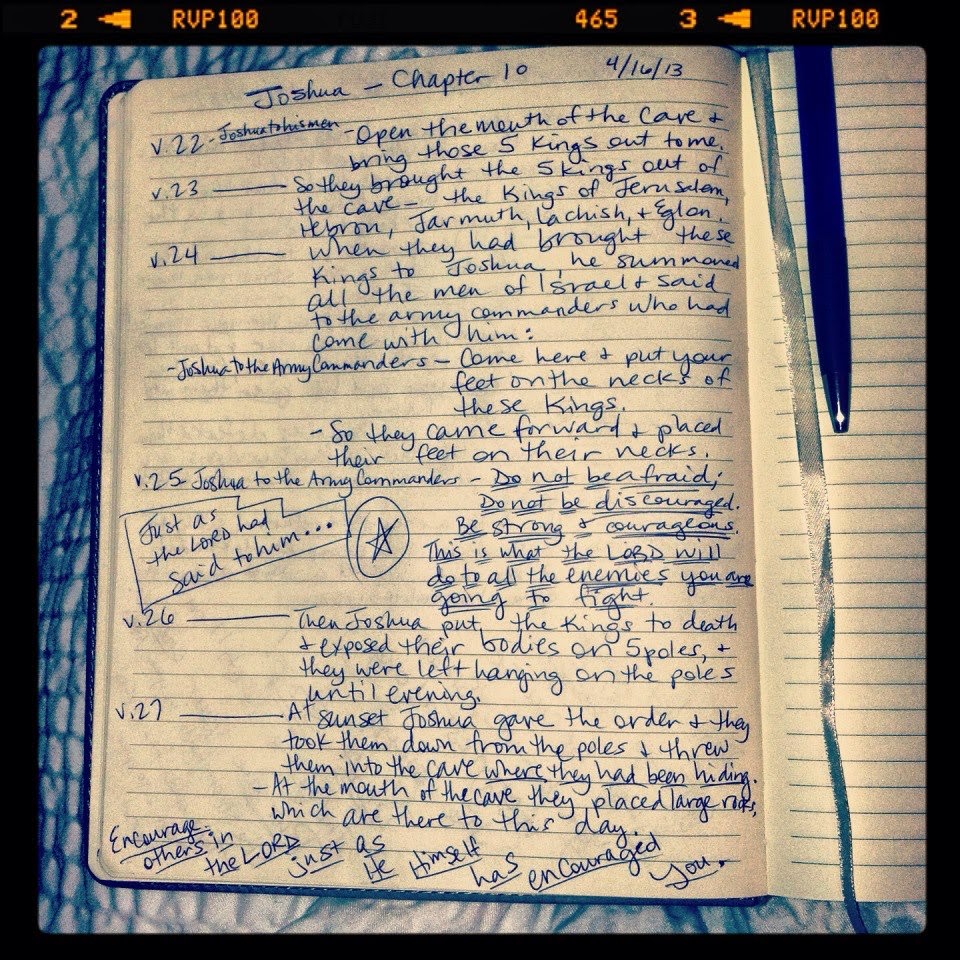 2 RVP100 465 3 RVP100
Joshua – Chapter 10 4/16/13
v.22 - Joshua to his men - Open the mouth of the Cave +
bring those 5 Kings out to me.
v.23 — So they brought the 5 Kings out of
the cave – the Kings of Jerusalem,
Hebron, Jarmuth, Lachish, + Eglon.
v.24 — When they had brought these
Kings to Joshua, he summoned
all the men of Israel + said
to the army commanders who had
come with him:
- Joshua to the Army Commanders – Come here + put your
feet on the necks of
these Kings.
- So they came forward + placed
their feet on their necks.
v.25 Joshua to the Army Commanders - Do not be afraid;
Do not be discouraged.
Be strong + courageous.
This is what the LORD will
do to all the enemies you are
going to fight.
Just as
the LORD had
said to him...
v.26 — Then Joshua put the Kings to death
+ exposed their bodies on 5 poles, +
they were left hanging on the poles
until evening.
v.27 — At sunset Joshua gave the order + they
took them down from the poles + threw
them into the cave where they had been hiding.
- At the mouth of the cave they placed large rocks,
which are there to this day.
Encourage
others in
the LORD just as He Himself has encouraged you.